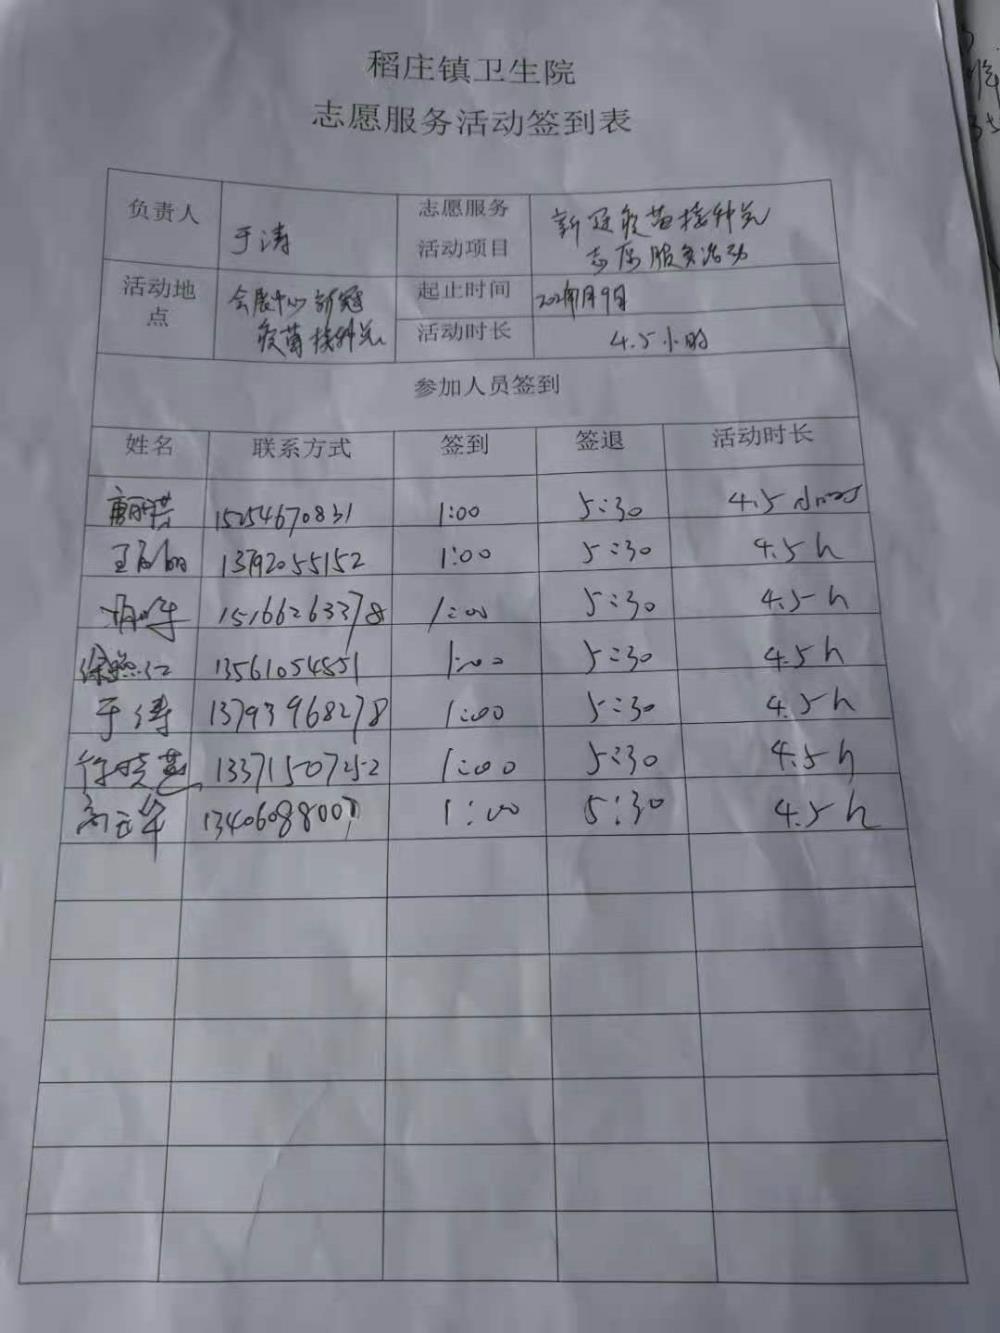 稻庄镇卫生院
志愿服务活动签到表
负责人 于涛 志愿服务活动项目 新冠疫苗接种点志愿服务活动
活动地点 会展中心新冠疫苗接种点 起止时间 月9日
活动时长 4.5小时
参加人员签到
姓名 联系方式 签到 签退 活动时长
15254670831 1:00 5:30 4.5
13792055152 1:00 5:30 4.5h
15166263378 1:00 5:30 4.5h
13561054551 1:00 5:30 4.5h
于涛 13793968278 1:00 5:30 4.5h
徐晓燕 13371507252 1:00 5:30 4.5h
1:00 5:30 4.5h